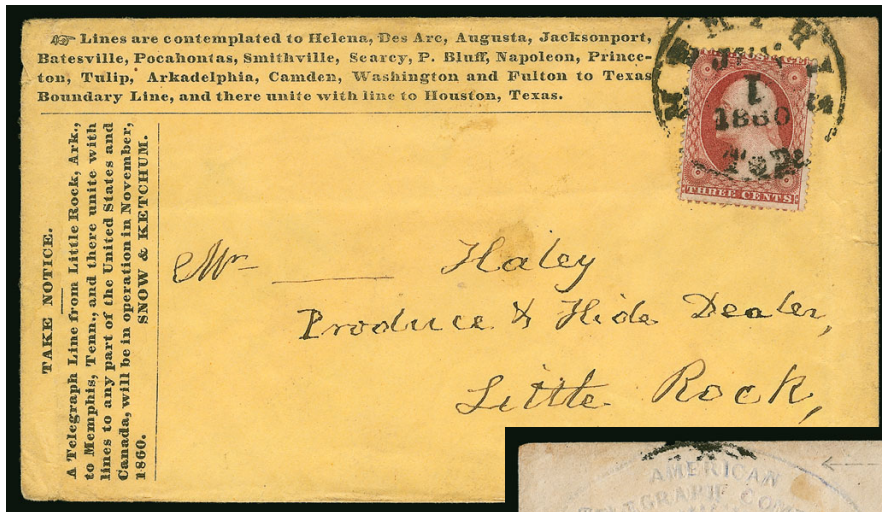 ☞ Lines are contemplated to Helena, Des Arc, Augusta, Jacksonport,
Batesville, Pocahontas, Smithville, Searcy, P. Bluff, Napoleon, Prince-
ton, Tulip, Arkadelphia, Camden, Washington and Fulton to Texas
Boundary Line, and there unite with line to Houston, Texas.
TAKE NOTICE.
A Telegraph Line from Little Rock, Ark.,
to Memphis, Tenn., and there unite with
lines to any part of the United States and
Canada, will be in operation in November,
1860. SNOW & KETCHUM.
1
1860
THREE CENTS
Mr Haley
Produce & Hide Dealer,
Little Rock,
AMERICAN
TELEGRAPH